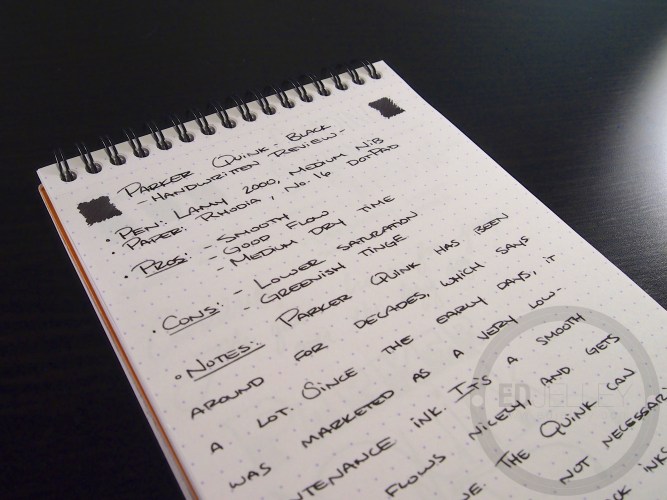 PARKER QUINK - BLACK
- HANDWRITTEN REVIEW -
• PEN: LAMY 2000, MEDIUM NIB
• PAPER: RHODIA, NO. 16 DOTPAD
• PROS: - SMOOTH
- GOOD FLOW
- MEDIUM DRY TIME
• CONS: - LOWER SATURATION
- GREENISH TINGE
• NOTES: PARKER QUINK HAS BEEN
AROUND FOR DECADES, WHICH SAYS
A LOT. SINCE THE EARLY DAYS, IT
WAS MARKETED AS A VERY LOW-
INTENANCE INK. IT'S A SMOOTH
FLOWS NICELY, AND GETS
THE QUINK CAN
NOT NECESSAR
INKS
ED JELLEY